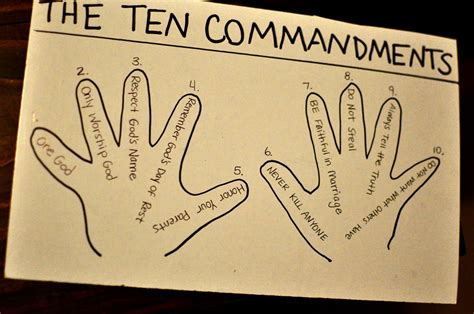 THE TEN COMMANDMENTS
One God
2.
Only Worship God
3.
Respect God's Name
4.
Remember God's Day of Rest
5.
Honor Your Parents
6.
NEVER KILL ANYONE
7.
BE Faithful in Marriage
8.
Do Not Steal
9.
Always Tell the Truth
10.
Do Not Want What Others Have